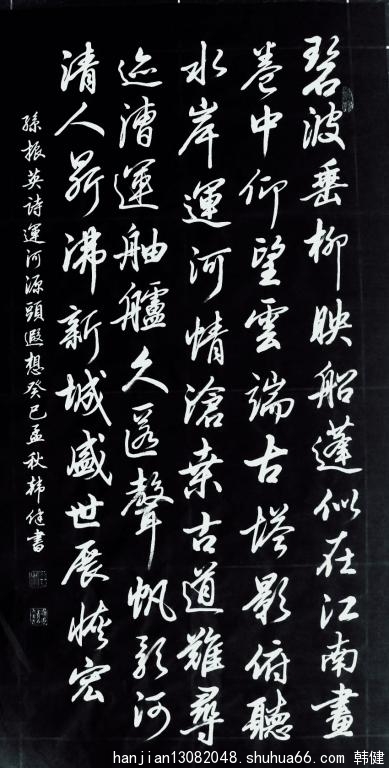 碧波垂柳映船蓬似在江南畫
卷中仰望雲端古塔影俯聽
水岸運河情滄桑古道難尋
迹漕運舳艫久匿聲帆影河
清人鼎沸新城盛世展恢宏
孫振英詩運河源頭遐想癸巳孟秋韩健書
hanjian13082048.shuhua66.com 韩健